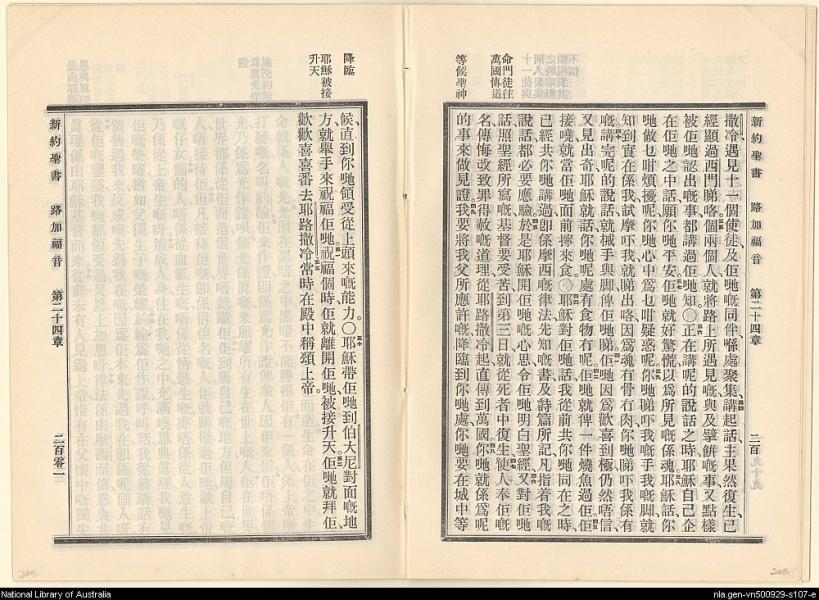 新約聖書 路加福音 第二十四章 二百
撒冷遇見十一個使徒及佢哋嘅同伴喺處聚集講起話主果然復生已
經顯過西門睇咯個兩個人就將路上所遇見嘅與及擘餅嘅事又點樣
被佢哋認出嘅事都講過佢哋知〇正在講呢的說話之時耶穌自己企
在佢哋之中話願你哋平安佢哋就好驚慌以爲所見嘅係魂耶穌話你
哋做乜咁煩擾呢你哋心中爲乜咁疑惑呢你哋睇吓我嘅手我嘅脚就
知到實在係我試摩吓我就睇出咯因爲魂冇骨冇肉你哋睇吓我係有
嘅講完呢的說話就械手與脚俾佢哋睇佢哋因爲歡喜到極仍然唔信
又見出奇耶穌就話你哋呢處有食物有呢佢哋就俾一件燒魚過佢佢
接嘵就當佢哋面前擰來食〇耶穌對佢哋話我從前共你哋同在之時
已經共你哋講過卽係摩西嘅律法先知嘅書及詩篇所記凡指着我嘅
說話都必要應驗於是耶穌開佢哋嘅心思令佢哋明白聖經又對佢哋
話照聖經所寫嘅基督要受苦到第三日就從死者中復生使人奉佢嘅
名傳悔改致罪得赦嘅道理從耶路撒冷起直傳到萬國你哋就係爲呢
的事來做見證我要將我父所應許嘅降臨到你哋處你哋要在城中等
命門徒往
萬國傳道
等候聖神
降臨
耶穌被接
升天
候直到你哋領受從上頭來嘅能力〇耶穌帶佢哋到伯大尼對面嘅地
方就舉手來祝福佢哋祝福個時佢就離開佢哋被接升天佢哋就拜佢
歡歡喜喜番去耶路撒冷當時在殿中稱頌上帝
新約聖書 路加福音 第二十四章 二百零一
National Library of Australia
nla.gen-vn500929-s107-e